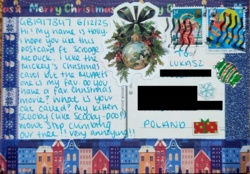 Merry Christmas
GB1917847 6/12/25
Hi! My name is Holly.
I hope you like this
postcard ft. Scrooge
McDuck. I like the
Mickey's Christmas
Carol but the Muppets
one is my fav. Do you
have a fav Christmas
movie? What is your
cat called? My kitten
Scooby (like Scooby-Doo!)
won't stop climbing
our tree!! Very annoying!!
LUKASZ
POLAND